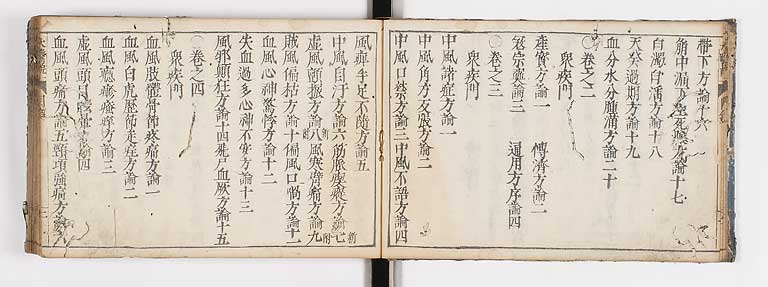 帶下方論十六
天癸過期方論十九
血分水分腫滿方論二十
〇卷之二
衆疾門
產寶方論一 博濟方論二
寇宗奭論三 通用方序論四
〇卷之三
衆疾門
中風諸症方論一
中風角弓反張方論二
中風口噤方論三中風不語方論四
風痺手足不隨方論五
中風自汗方論六筋脈瘈瘲方論七新附
虛風頭眩方論八新附風寒臂痛方論九
賊風偏枯方論十偏風口喎方論十一
血風心神驚悸方論十二
失血過多心神不寧方論十三
風邪顚狂方論十四尸血厥方論十五
〇卷之四
衆疾門
血風肢體骨節疼痛方論一
血風白虎歷節走疰方論二
血風癮疹瘙痒方論三
虛風頭目眩暈方論四
血風頭痛方論五頸項強痛方論六